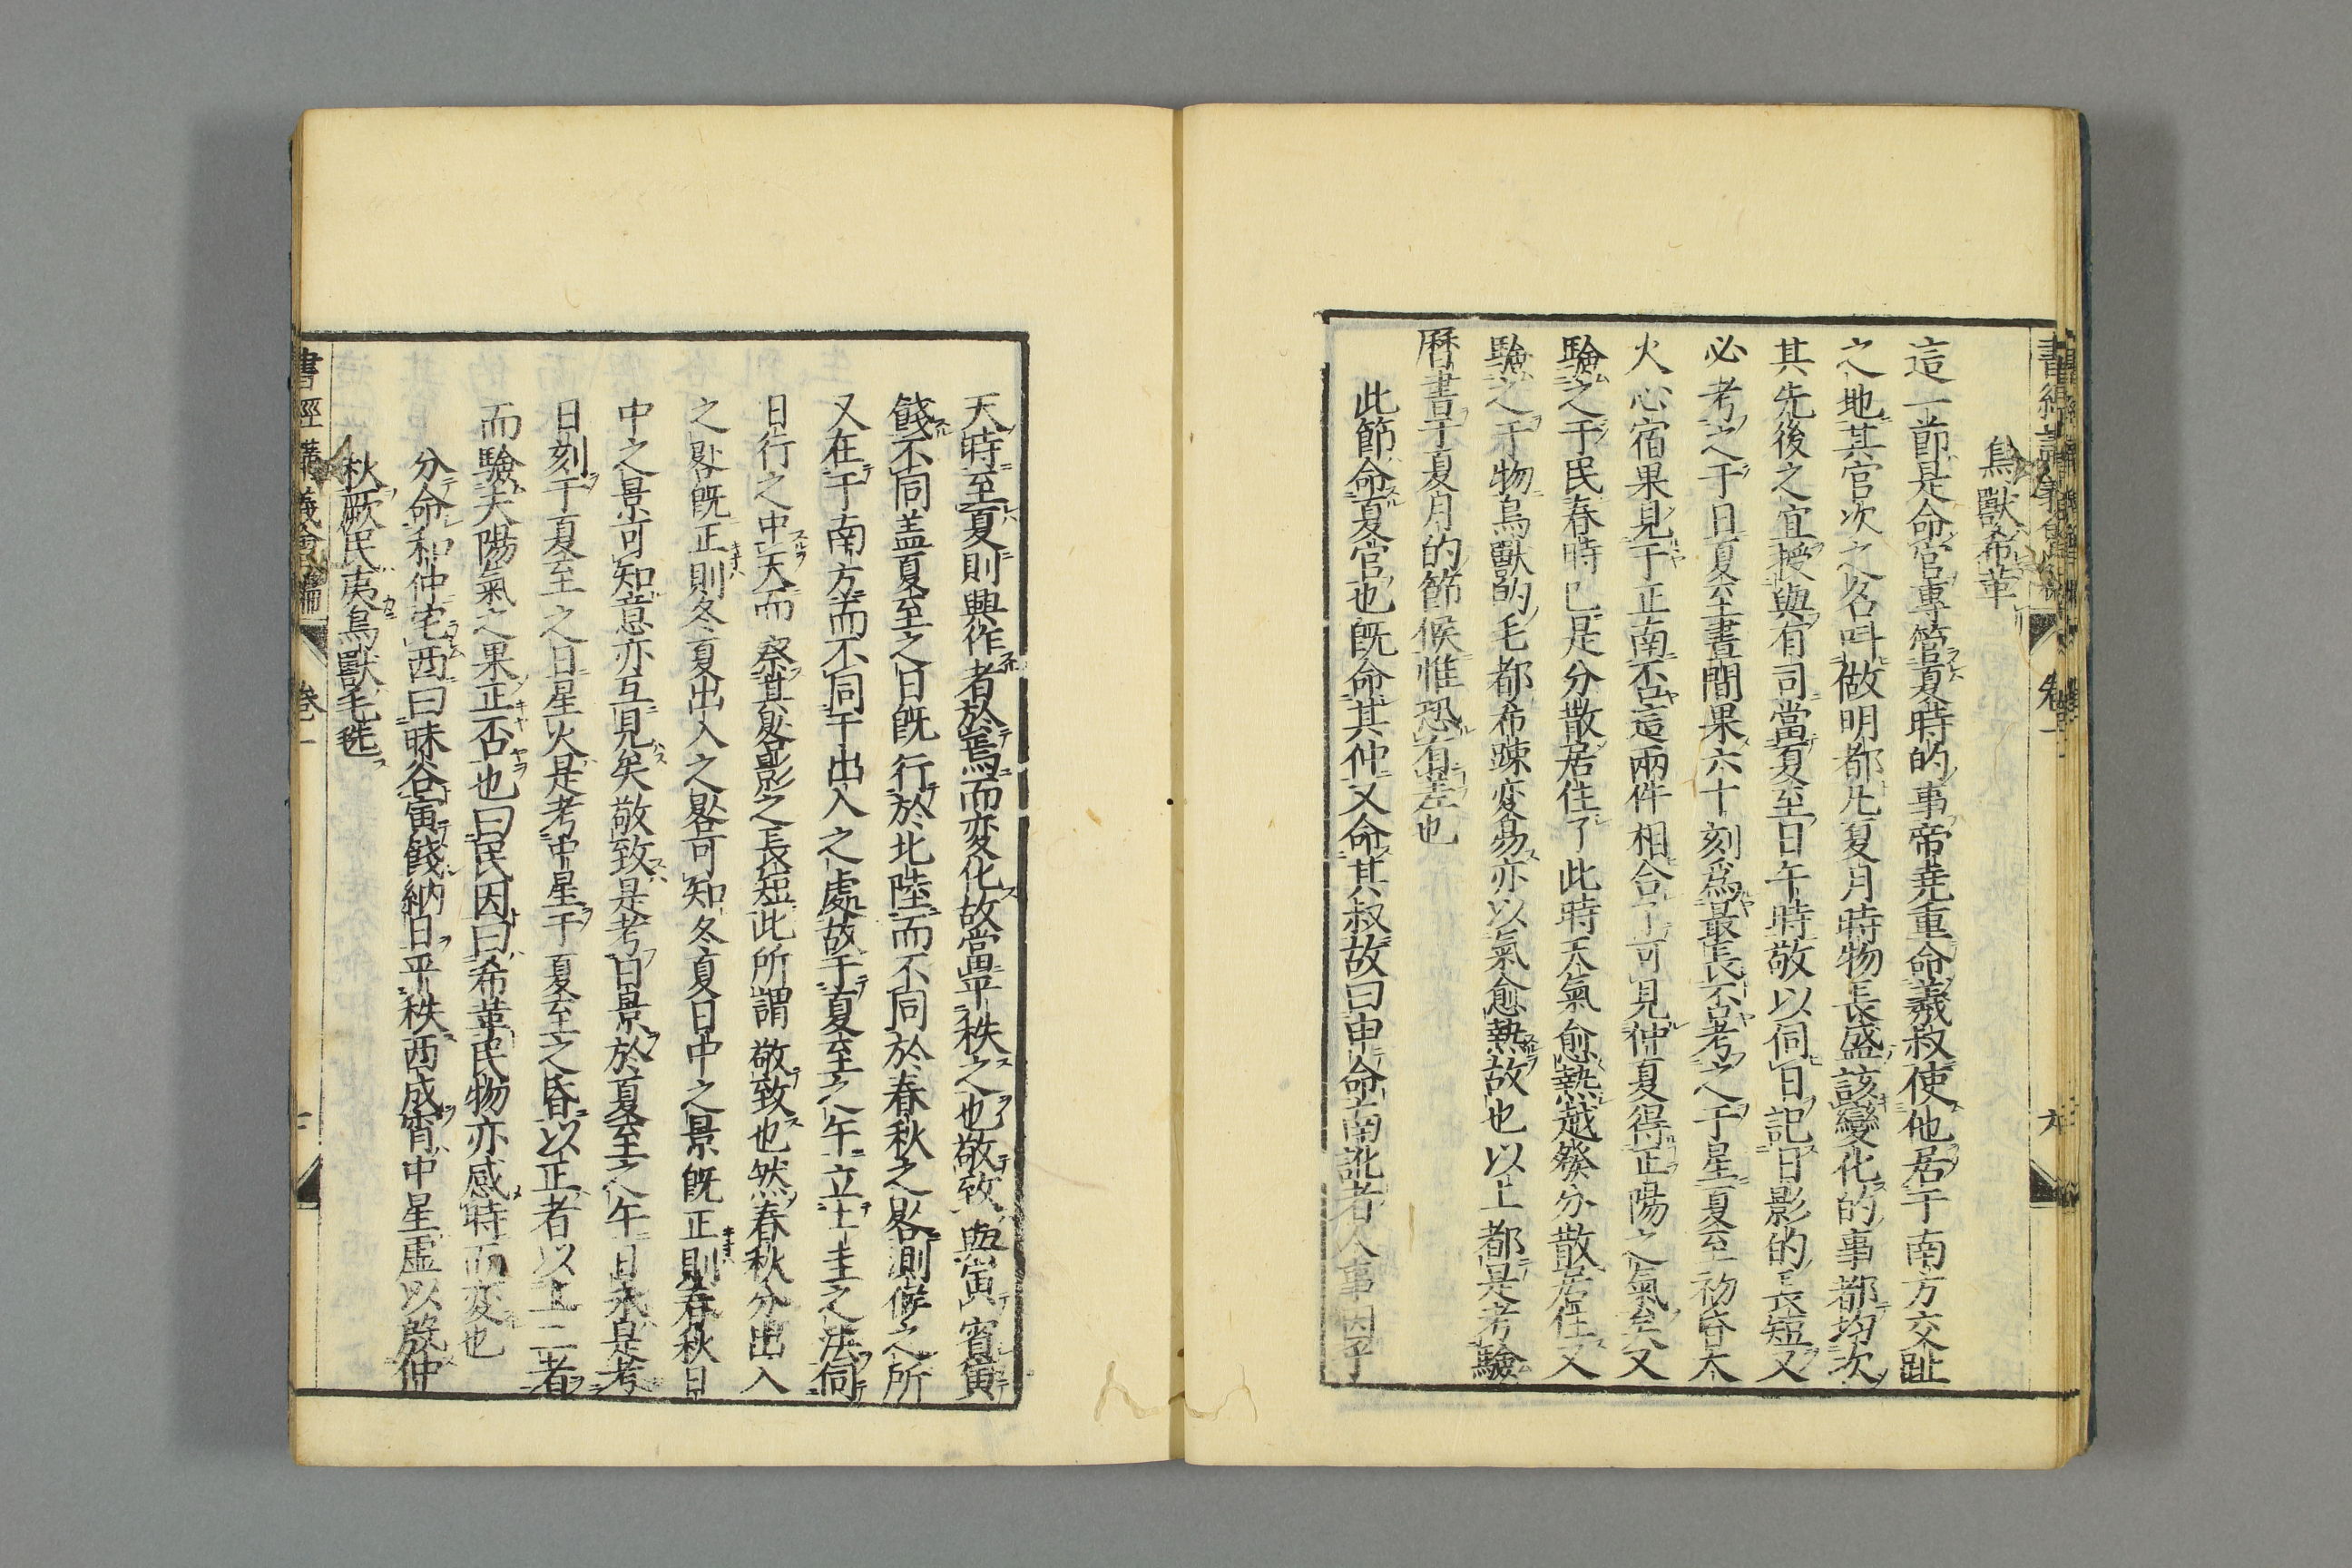 書經講義會編
卷一
九
鳥獸希革
這一節是命官專管夏時的事帝堯重命羲叔使他居于南方交趾
之地其官次之名叫做明都凡夏月時物長盛該變化的事都均次
其先後之宜授與有司當夏至日午時敬以伺日記日影的長短又
必考之于日夏至晝間果六十刻爲最長否考之于星夏至初昏大
火心宿果見于正南否這兩件相合了可見仲夏得正陽之氣矣又
驗之于民春時已是分散居住了此時天氣愈熱越發分散居住又
驗之于物鳥獸的毛都希疎変易亦以氣愈熱故也以上都是考驗
曆書于夏月的節候惟恐有差也
此節命夏官也既命其仲又命其叔故曰申命南訛者人事因乎
天時至夏則興作者於焉而変化故當平秩之也敬致與寅賓寅
餞不同盖夏至之日既行於北陸而不同於春秋之晷測候之所
又在于南方而不同于出入之處故于夏至之午立土圭之法伺
日行之中天而察其晷影之長短此所謂敬致也然春秋分出入
之晷既正則冬夏出入之晷可知冬夏日中之景既正則春秋日
中之景可知意亦互見矣敬致是考日景於夏至之午日永是考
日刻于夏至之日星火是考中星于夏至之昏以正者以上二者
而驗夫陽氣之果正否也曰民因曰希革民物亦感時而変也
分命和仲宅西曰昧谷寅餞納日平秩西成宵中星虛以殷仲
秋厥民夷鳥獸毛毨
書經講義會編
卷一